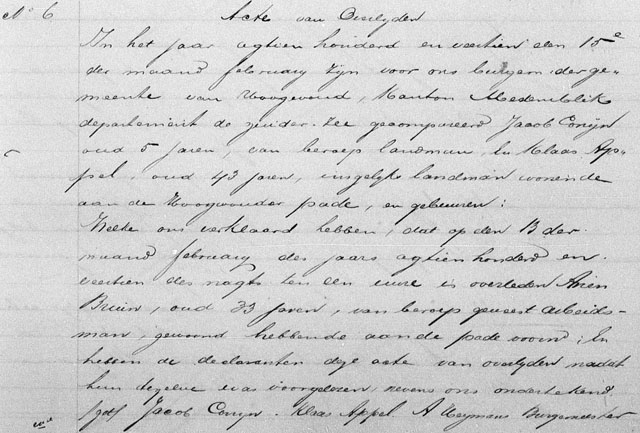 No 6 Acte van Overlyden
In het jaar agtien honderd en veertien den 15e
der maand february zyn voor ons burgem: der ge-
meente van Hoogwoud, Kanton Medenblik
departement de zuider-zee gecompareerd Jacob Conyn
oud 5 jaren, van beroep landman, En Klaas Ap-
pel, oud 43 jaren, insgelyks landman wonende
aan de Hoogwouder pade, en gebueren:
Welke ons verklaard hebben, dat op den 13 der
maand february des jaars agtien honderd en
veertien des nagts ten een uure is overleden Arien
Bruin, oud 33 jaren, van beroep geweest arbeids-
man, gewoond hebbende aan de pade voorn: En
hebben de declaranten deze acte van overlyden nadat
hun dezelve was voorgelezen nevens ons ondertekend.
/get/ Jacob Conyn. Klaas Appel. A Heymans Burgemeester